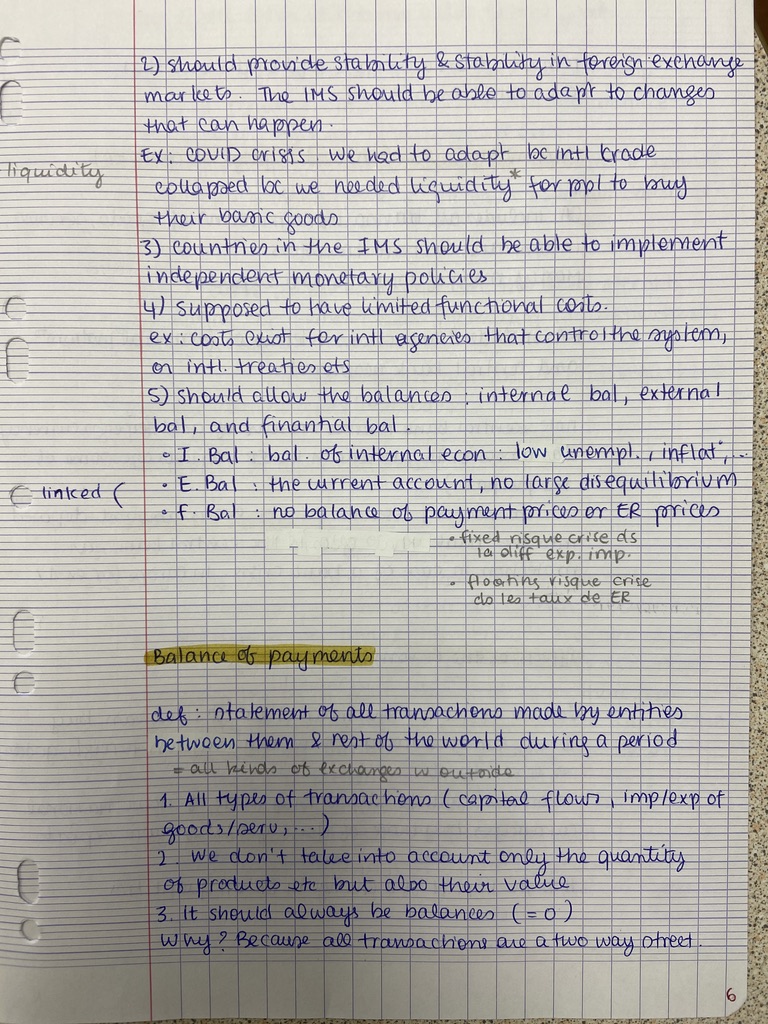 2) should provide stability & stability in foreign exchange
markets. The IMS should be able to adapt to changes
that can happen.
Ex: COVID crisis we had to adapt bc intl trade
liquidity
collapsed bc we needed liquidity* for ppl to buy
their basic goods
3) countries in the IMS should be able to implement
independent monetary policies
4) supposed to have limited functional costs.
ex: costs exist for intl agencies that control the system,
on intl. treaties ets
5) should allow the balances: internal bal, external
bal, and finantial bal.
• I. Bal: bal. of internal econ: low unempl., inflat°,...
linked ( • E. Bal: the current account, no large disequilibrium
• F. Bal: no balance of payment prices or ER prices
• fixed risque crise ds
la diff exp. imp.
• floating risque crise
ds les taux de ER
Balance of payments
def: statement of all transactions made by entities
between them & rest of the world during a period
= all kinds of exchanges w outside
1. All types of transactions (capital flows, imp/exp of
goods/serv,...)
2. We don't take into account only the quantity
of products etc but also their value
3. It should always be balances (=0)
Why? Because all transactions are a two way street.
6